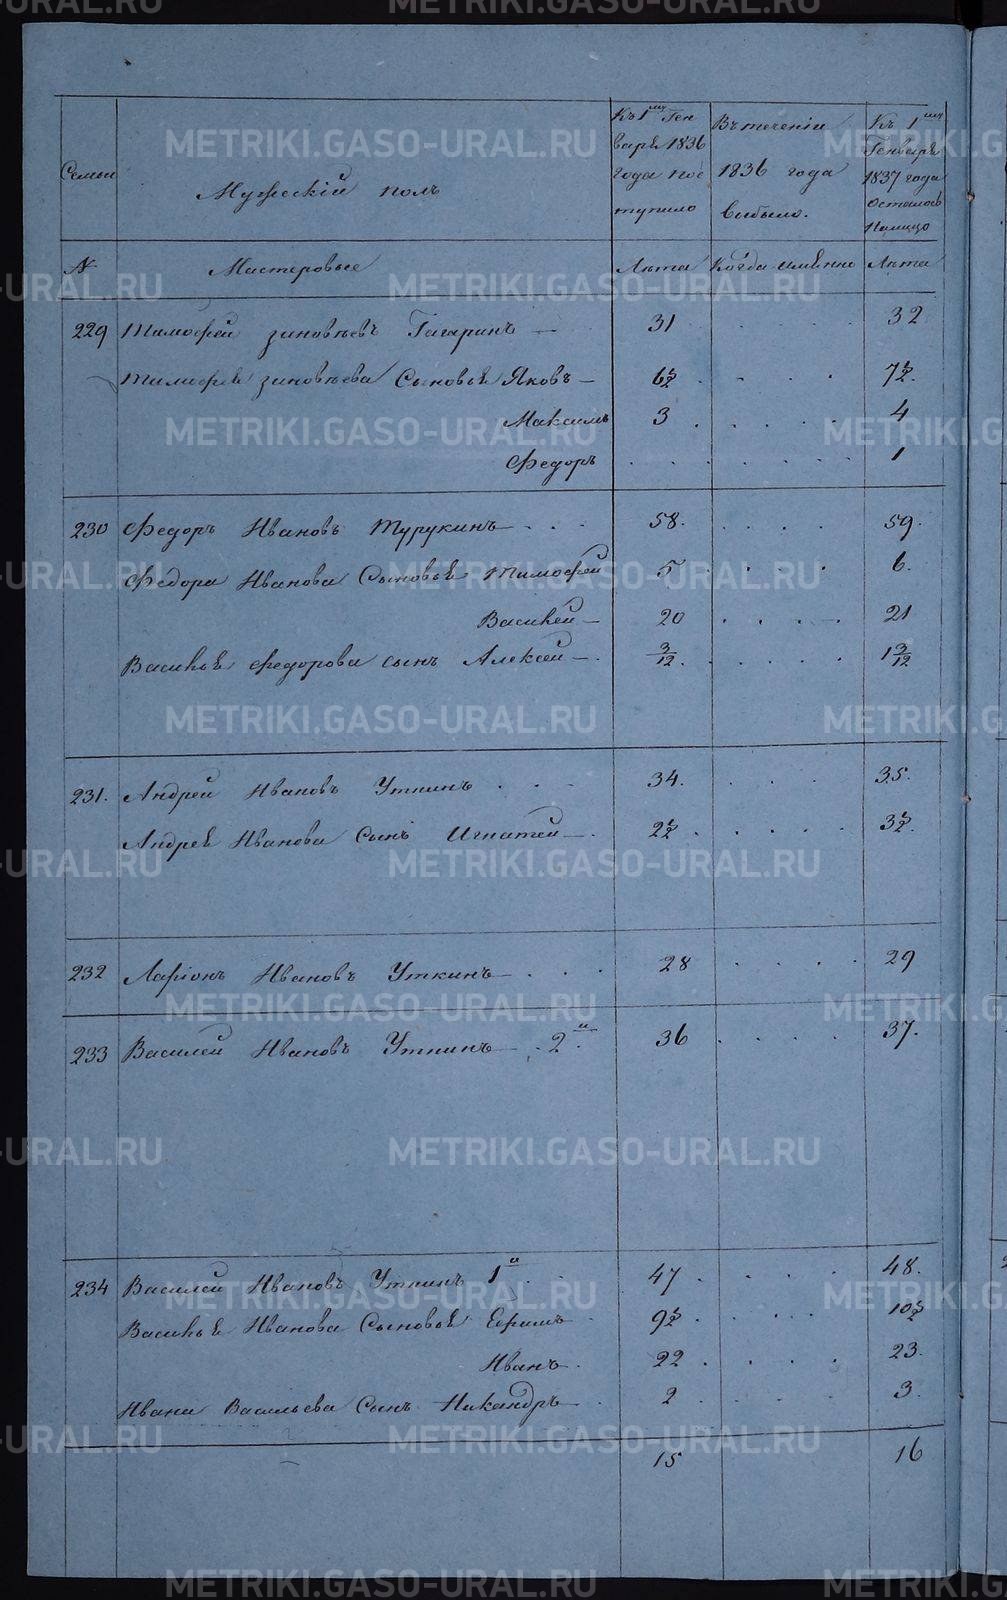 Семьи
Мужескій полъ
Къ 1му Ген
варя 1836
года пос
тупило
Въ теченіи
1836 года
выбыло.
Къ 1му
Генваря
1837 года
осталось
налицо
№ Мастеровые Лѣта Когда именно Лѣта
229 Тимофей Зиновьевъ Гагаринъ — 31 . . . . 32
Тимофея Зиновьева Сыновья Яковъ — 6½ . . . . 7½.
Максимъ 3 . . . . . 4
Федоръ . . . . . . . . 1
230 Федоръ Ивановъ Турукинъ — . . . 58. . . . . 59.
Федора Иванова Сыновья Тимофей 5 . . . . 6.
Василей — 20 . . . . 21
Василья Федорова сынъ Алексей — . 3/12. . . . . . 1 3/12
231. Андрей Ивановъ Уткинъ . . . 34. . . . 35.
Андрея Иванова Сынъ Игнатей — . 2½ . . . . . 3½.
232 Ларіонъ Ивановъ Уткинъ — . . . 28 . . . . 29
233 Василей Ивановъ Уткинъ — . 2й 36 . . . . 37.
234 Василей Ивановъ Уткинъ 1й . . 47 . . . . 48.
Василья Иванова Сыновья Ефимъ . 9½ . . . . 10½
Иванъ . 22 . . . . 23.
Ивана Васильева Сынъ Никандръ — . 2 . . . 3.
15 16
METRIKI.GASO-URAL.RU